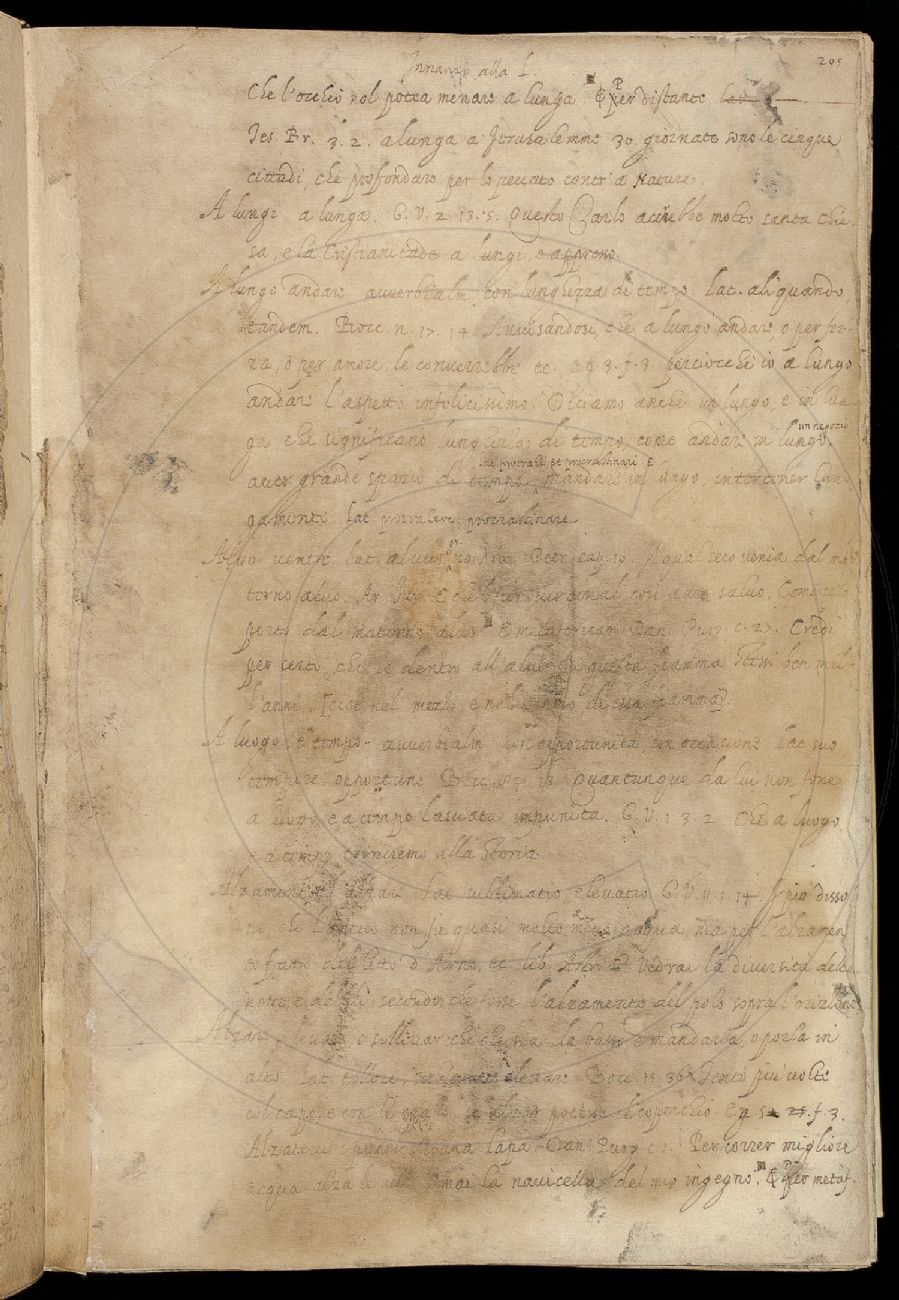 Innanzi alla L.
205
Che l'occhio nol potea menare a lunga per distante
Tes. Br. 3. 2. a lunga a Jerusalemme 30. giornate sono le cinque
cittadi, che profondaro per lo peccato contr' a natura.
A lungi a lunga. G. V. 2. 13. 5. Questo Carlo accrebbe molto santa Chie-
sa, e la Cristianitade a lungi, e appresso.
A lungo andare avverbialm. con lunghezza di tempo. lat. aliquando,
tandem. Bocc. n. 17. 14. Avvisandosi, che a lungo andare, o per for-
za, o per amore, le converrebbe ec. E g. 3. f. 3. perciocche io a lungo
andare l'aspetto infelicissimo. Diciamo anche in lungo, e in lun-
ga, che significano lunghezza di tempo, come andare in lungo
un negozio
aver grande spazio di tempo mandare in lungo, intertener lun-
gamente lat. protralere, procrastinare
Alvo ventre lat. alvus Petr. cap. 10. Il qual seco venia dal ma-
terno alvo.
porto dal materno alvo Dan. Purg. c. 27. Credi
per certo, che se dentro all' alvo di questa fiamma stessi ben mil-
l'anni. [cioè nel mezzo, e nel di sua fiamma].
A luogo, e tempo. avverbialm. con opportunità, con occasione lat. suo
tempore, opportune Bocc. Quantunque da lui non fosse
a luogo, e a tempo lasciata impunita. G. V. 1. 3. 2. Che a luogo,
e a tempo torneremo alla storia.
Alzamento alzare lat. sublimatio elevatio G. V. 11. 1. 14. più disso-
no, che l'Antico non fu quasi molto acqua ma per l'alzamen-
to fatto del letto d' Arno, ec. lib. Astr. Vedrai la diversità del
notte, e del di secondo, che fosse l'alzamento del polo sopra l'orizonte
Alzare levare, o sollevar che che sia da basso e mandarla, o porla in
alto lat. tollere, elevare Bocc. 15. 36. Tentò più volte
col capo, e con le spalle, se alzar potesse il coperchio. E g. 5. 25. f. 3.
Alzatevi i panni monna Lapa Dan. Purg. c. 1. Per correr migliore
acqua alza le vele Omai la navicella del mio ingegno. per metaf.